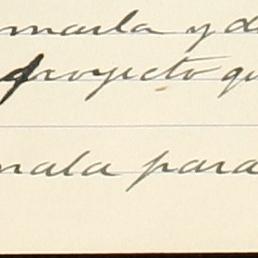 marla y d
proyecto qu
nala para